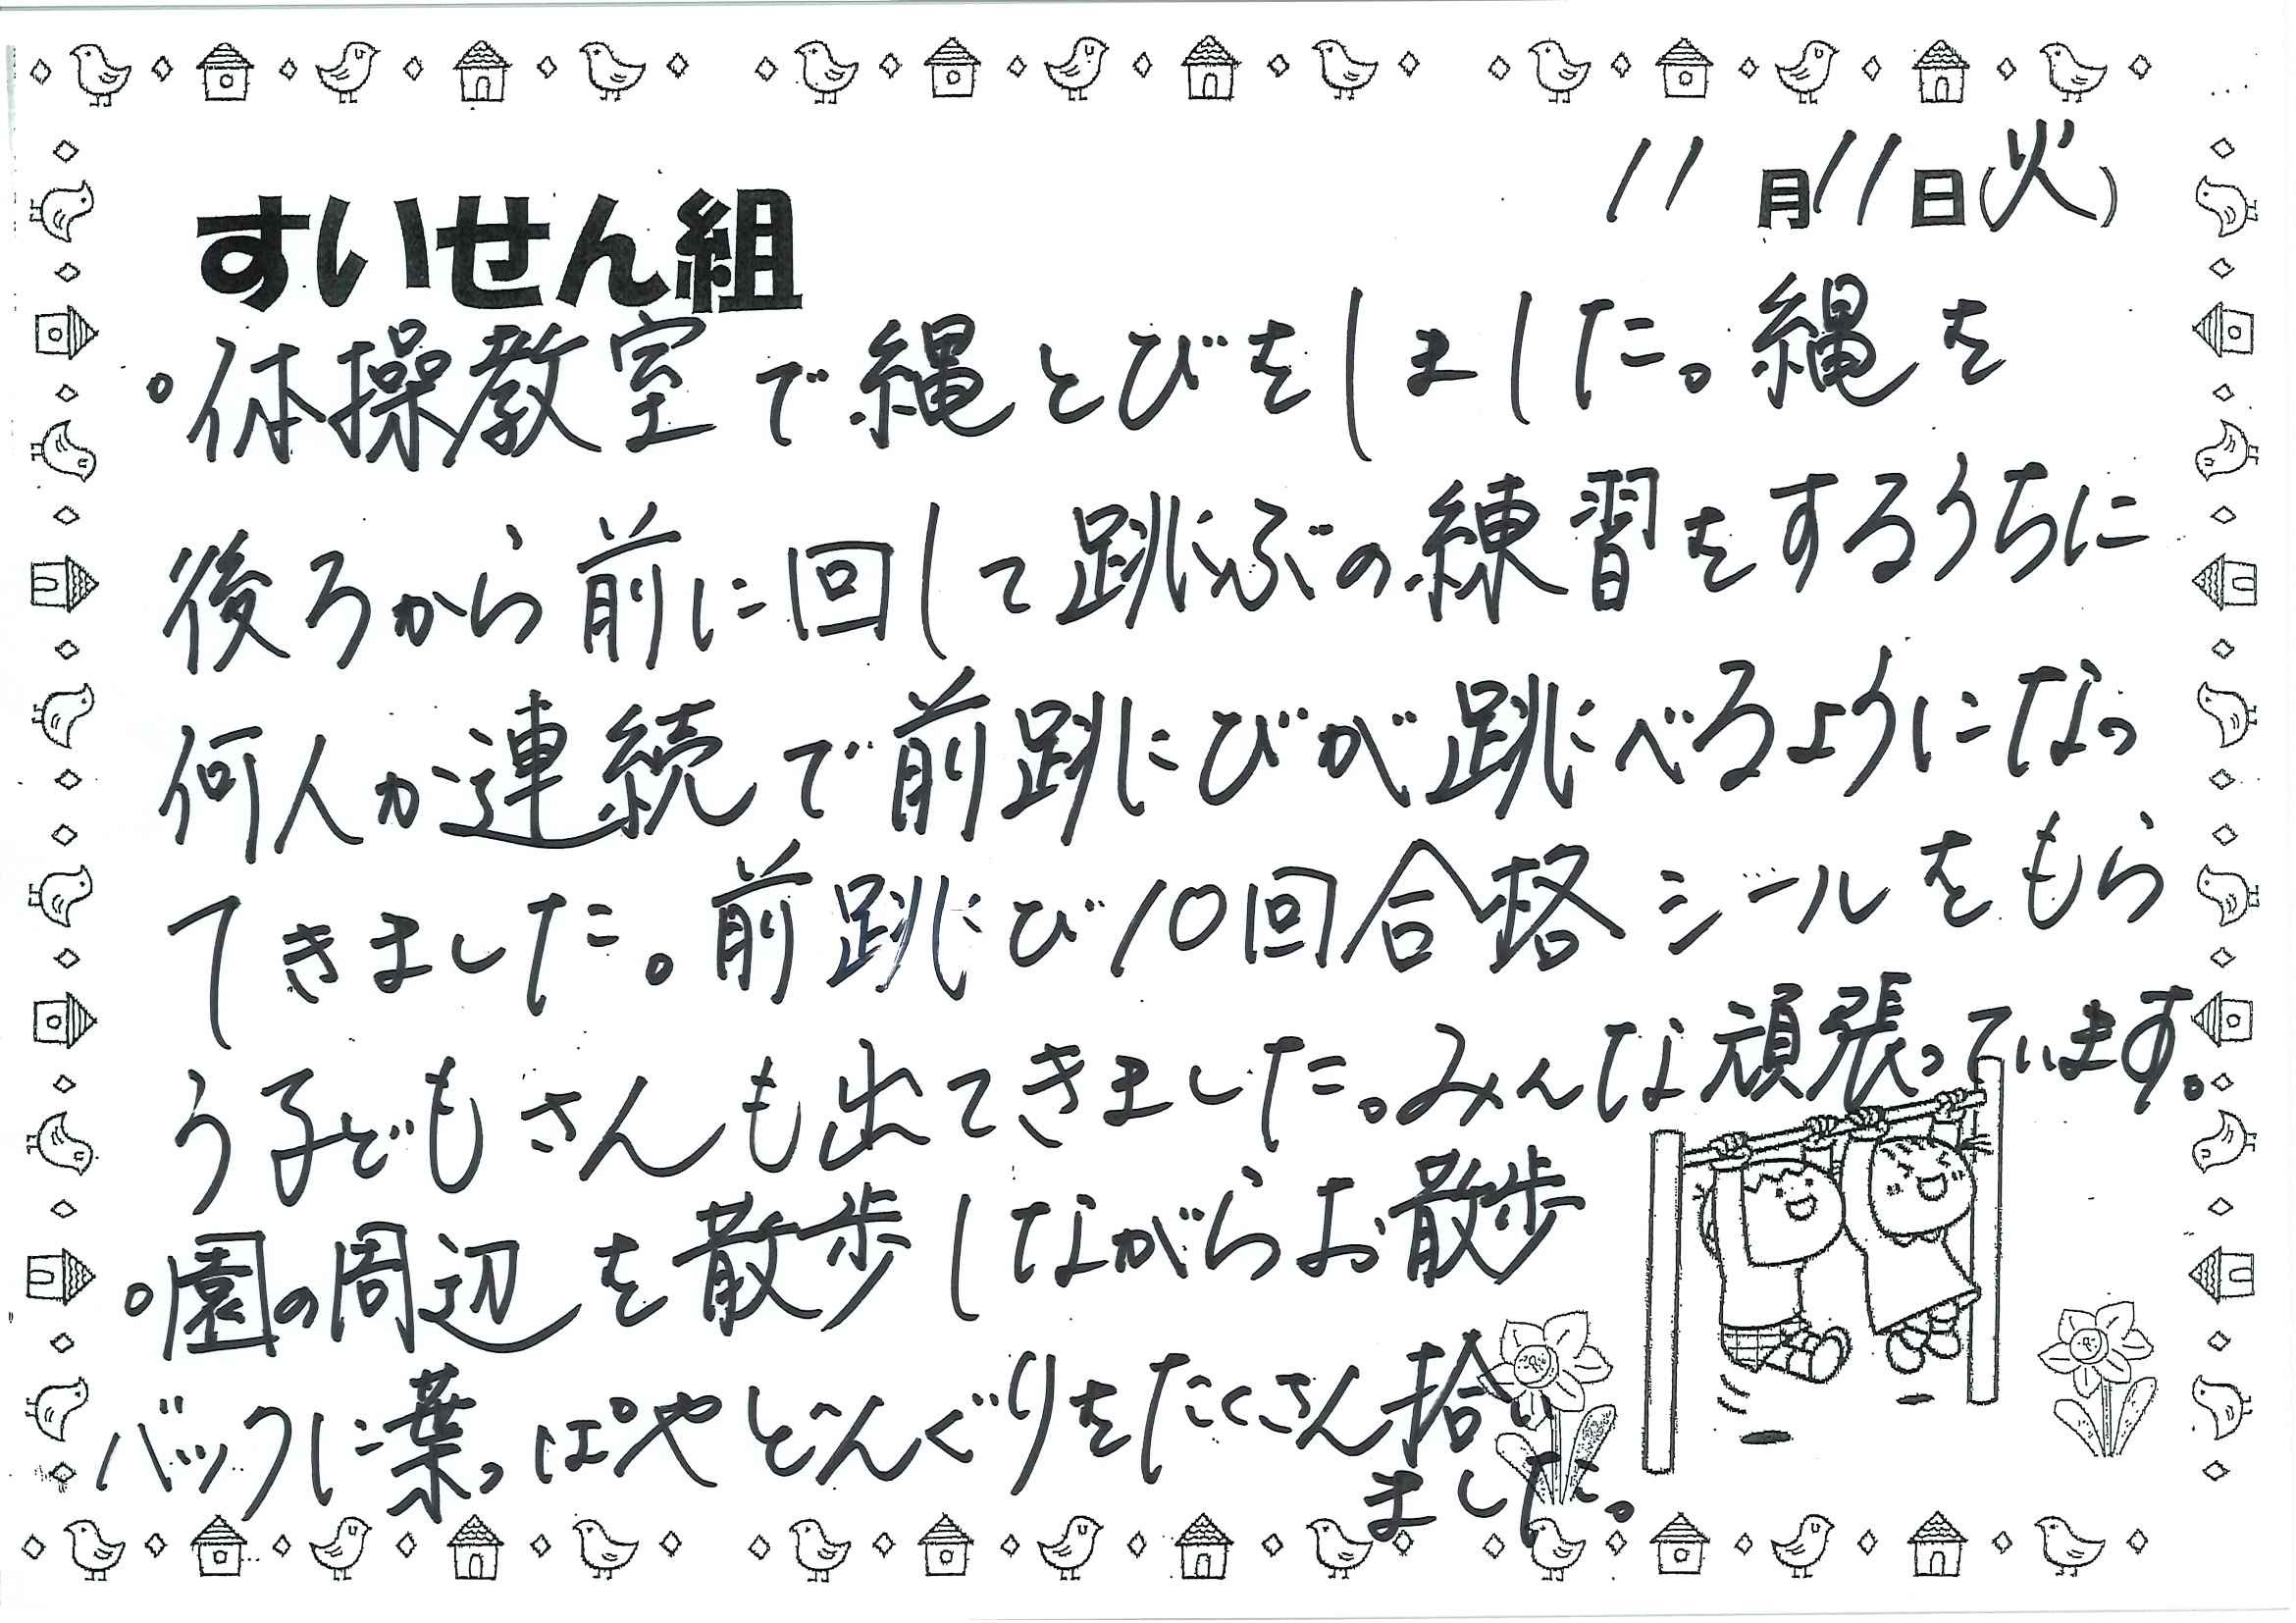 11月11日(火)
すいせん組
。体操教室で縄とびをしました。縄を
後ろから前に回して跳ぶの練習をするうちに
何人か連続で前跳びが跳べるようになっ
てきました。前跳び10回合格シールをもら
う子どもさんも出てきました。みんな頑張っています。
。園の周辺を散歩しながらお散歩
バックに葉っぱやどんぐりをたくさん拾い
ました。